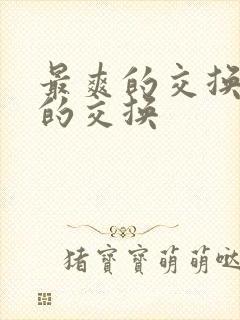 最爽的交换
的交换
猪宝宝萌萌哒